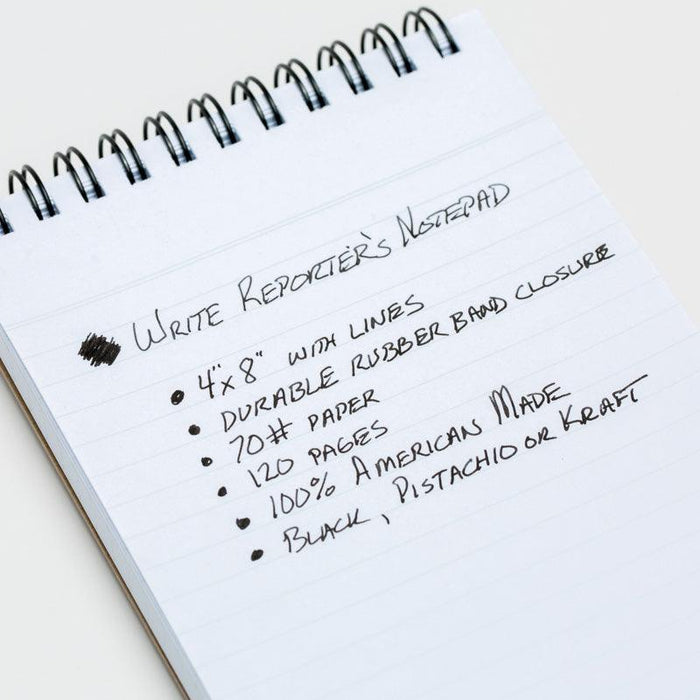 WRITE REPORTER'S NOTEPAD
• 4" x 8" WITH LINES
• DURABLE RUBBER BAND CLOSURE
• 70# PAPER
• 120 PAGES
• 100% AMERICAN MADE
• BLACK, PISTACHIO OR KRAFT